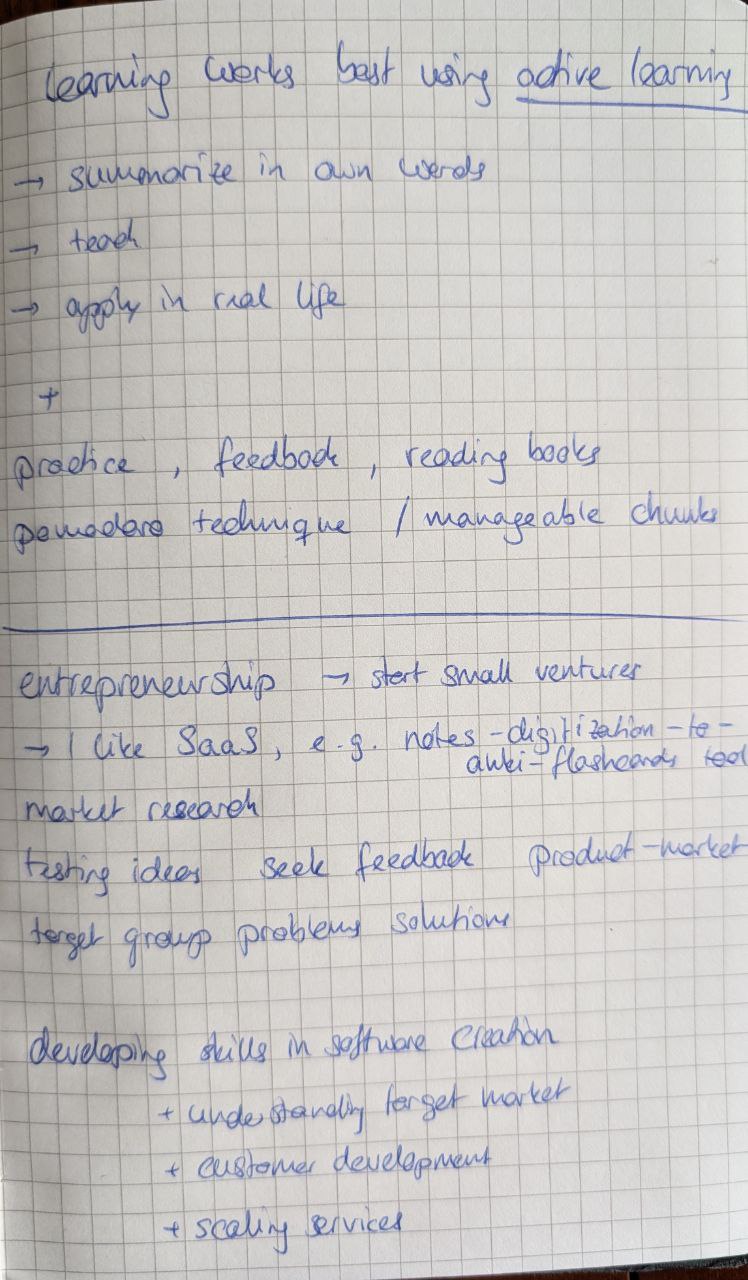 learning works best using active learning
→ summarize in own words
→ teach
→ apply in real life
+
practice , feedback , reading books
pomodoro technique / manageable chunks
entrepreneurship → start small ventures
→ I like SaaS, e.g. notes-digitization-to-
anki-flashcards tool
market research
testing ideas seek feedback product-market
target group problems solutions
developing skills in software creation
+ understanding target market
+ customer development
+ scaling services